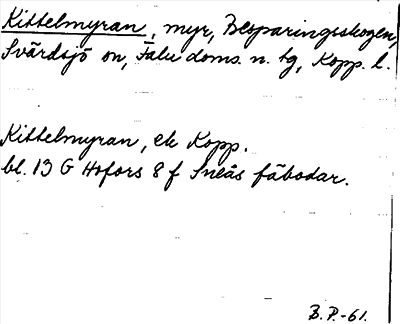 Kittelmyran, myr, Besparingsskogen,
Svärdsjö sn, Falu doms. n. tg, Kopp. l.
Kittelmyran, ek Kopp.
bl. 13 G Hofors 8 f Snéås fäbodar.
B. P.-61.